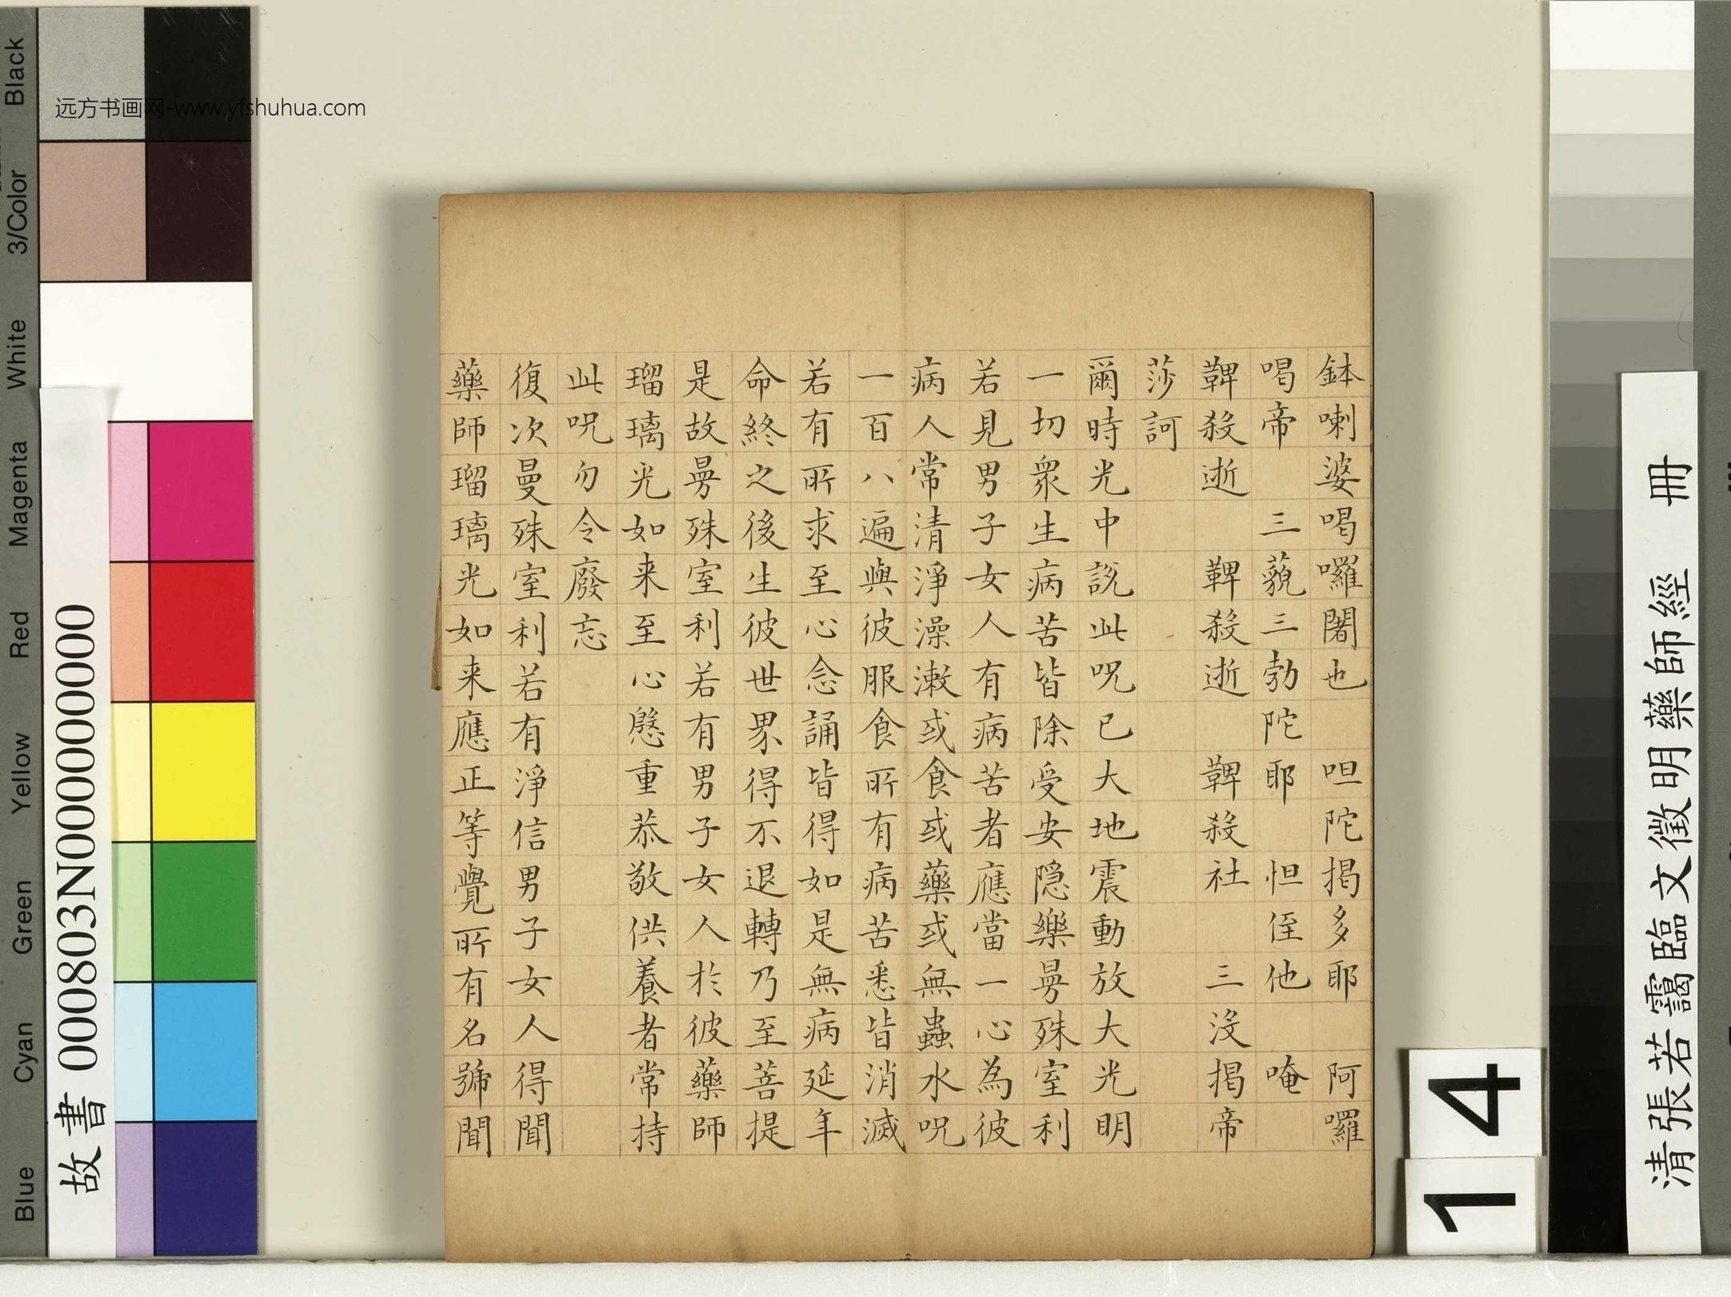 远方书画网-www.yfshuhua.com
Black
3/Color
White
Magenta
Red
Yellow
Green
Cyan
Blue
故書 000803N000000000
清張若靄臨文徵明藥師經 冊
14
鉢喇婆喝囉闍也 呾陀揭多耶 阿囉
喝帝 三藐三勃陀耶 怛侄他 唵
鞞殺逝 鞞殺逝 鞞殺社 三沒揭帝
莎訶
爾時光中説此呪已大地震動放大光明
一切衆生病苦皆除受安隠樂曼殊室利
若見男子女人有病苦者應當一心為彼
病人常清淨澡漱或食或藥或無蟲水呪
一百八遍與彼服食所有病苦悉皆消滅
若有所求至心念誦皆得如是無病延年
命終之後生彼世界得不退轉乃至菩提
是故曼殊室利若有男子女人於彼藥師
瑠璃光如来至心慇重恭敬供養者常持
此呪勿令廢忘
復次曼殊室利若有淨信男子女人得聞
藥師瑠璃光如来應正等覺所有名號聞